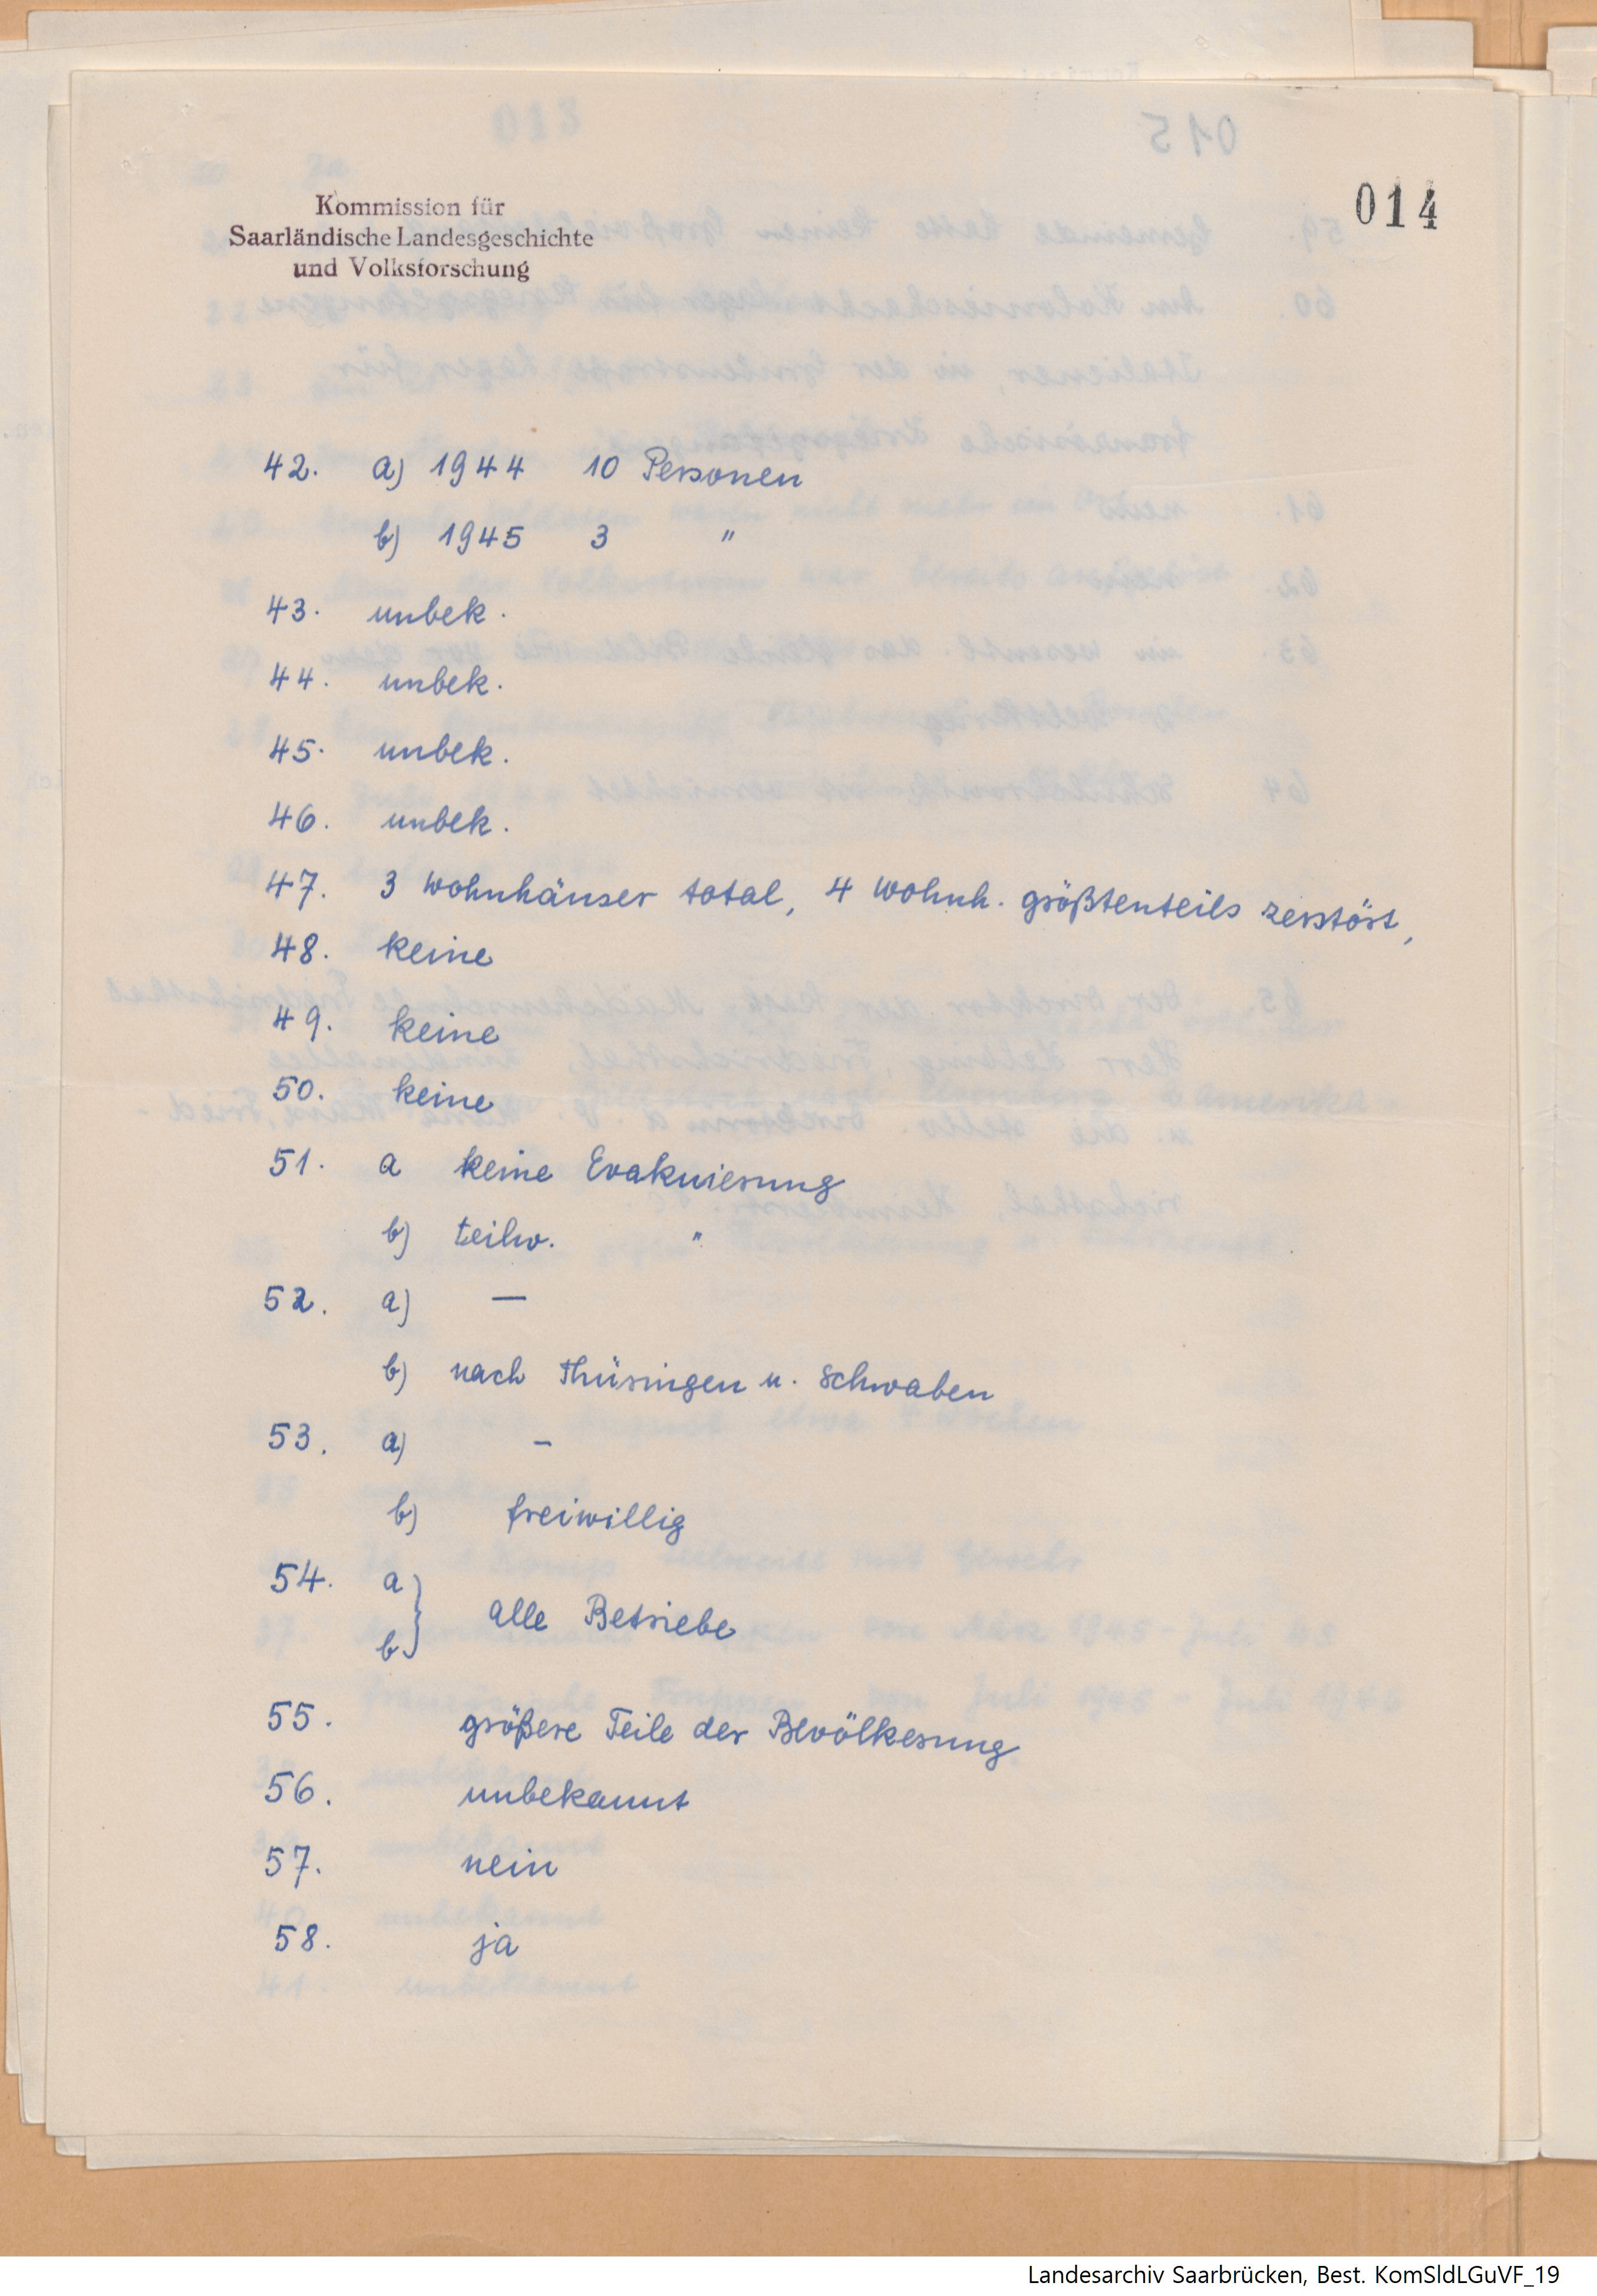 014
Kommission für
Saarländische Landesgeschichte
und Volksforschung
42. a) 1944 10 Personen
b) 1945 3 "
43. unbek.
44. unbek.
45. unbek.
46. unbek.
47. 3 Wohnhäuser total, 4 Wohnh. größtenteils zerstört,
48. keine
49. keine
50. keine
51. a keine Evakuierung
b) teilw. "
52. a) —
b) nach Thüringen u. Schwaben
53. a) –
b) freiwillig
54. a
alle Betriebe
b
55. größere Teile der Bevölkerung
56. unbekannt
57. nein
58. ja
Landesarchiv Saarbrücken, Best. KomSldLGuVF_19